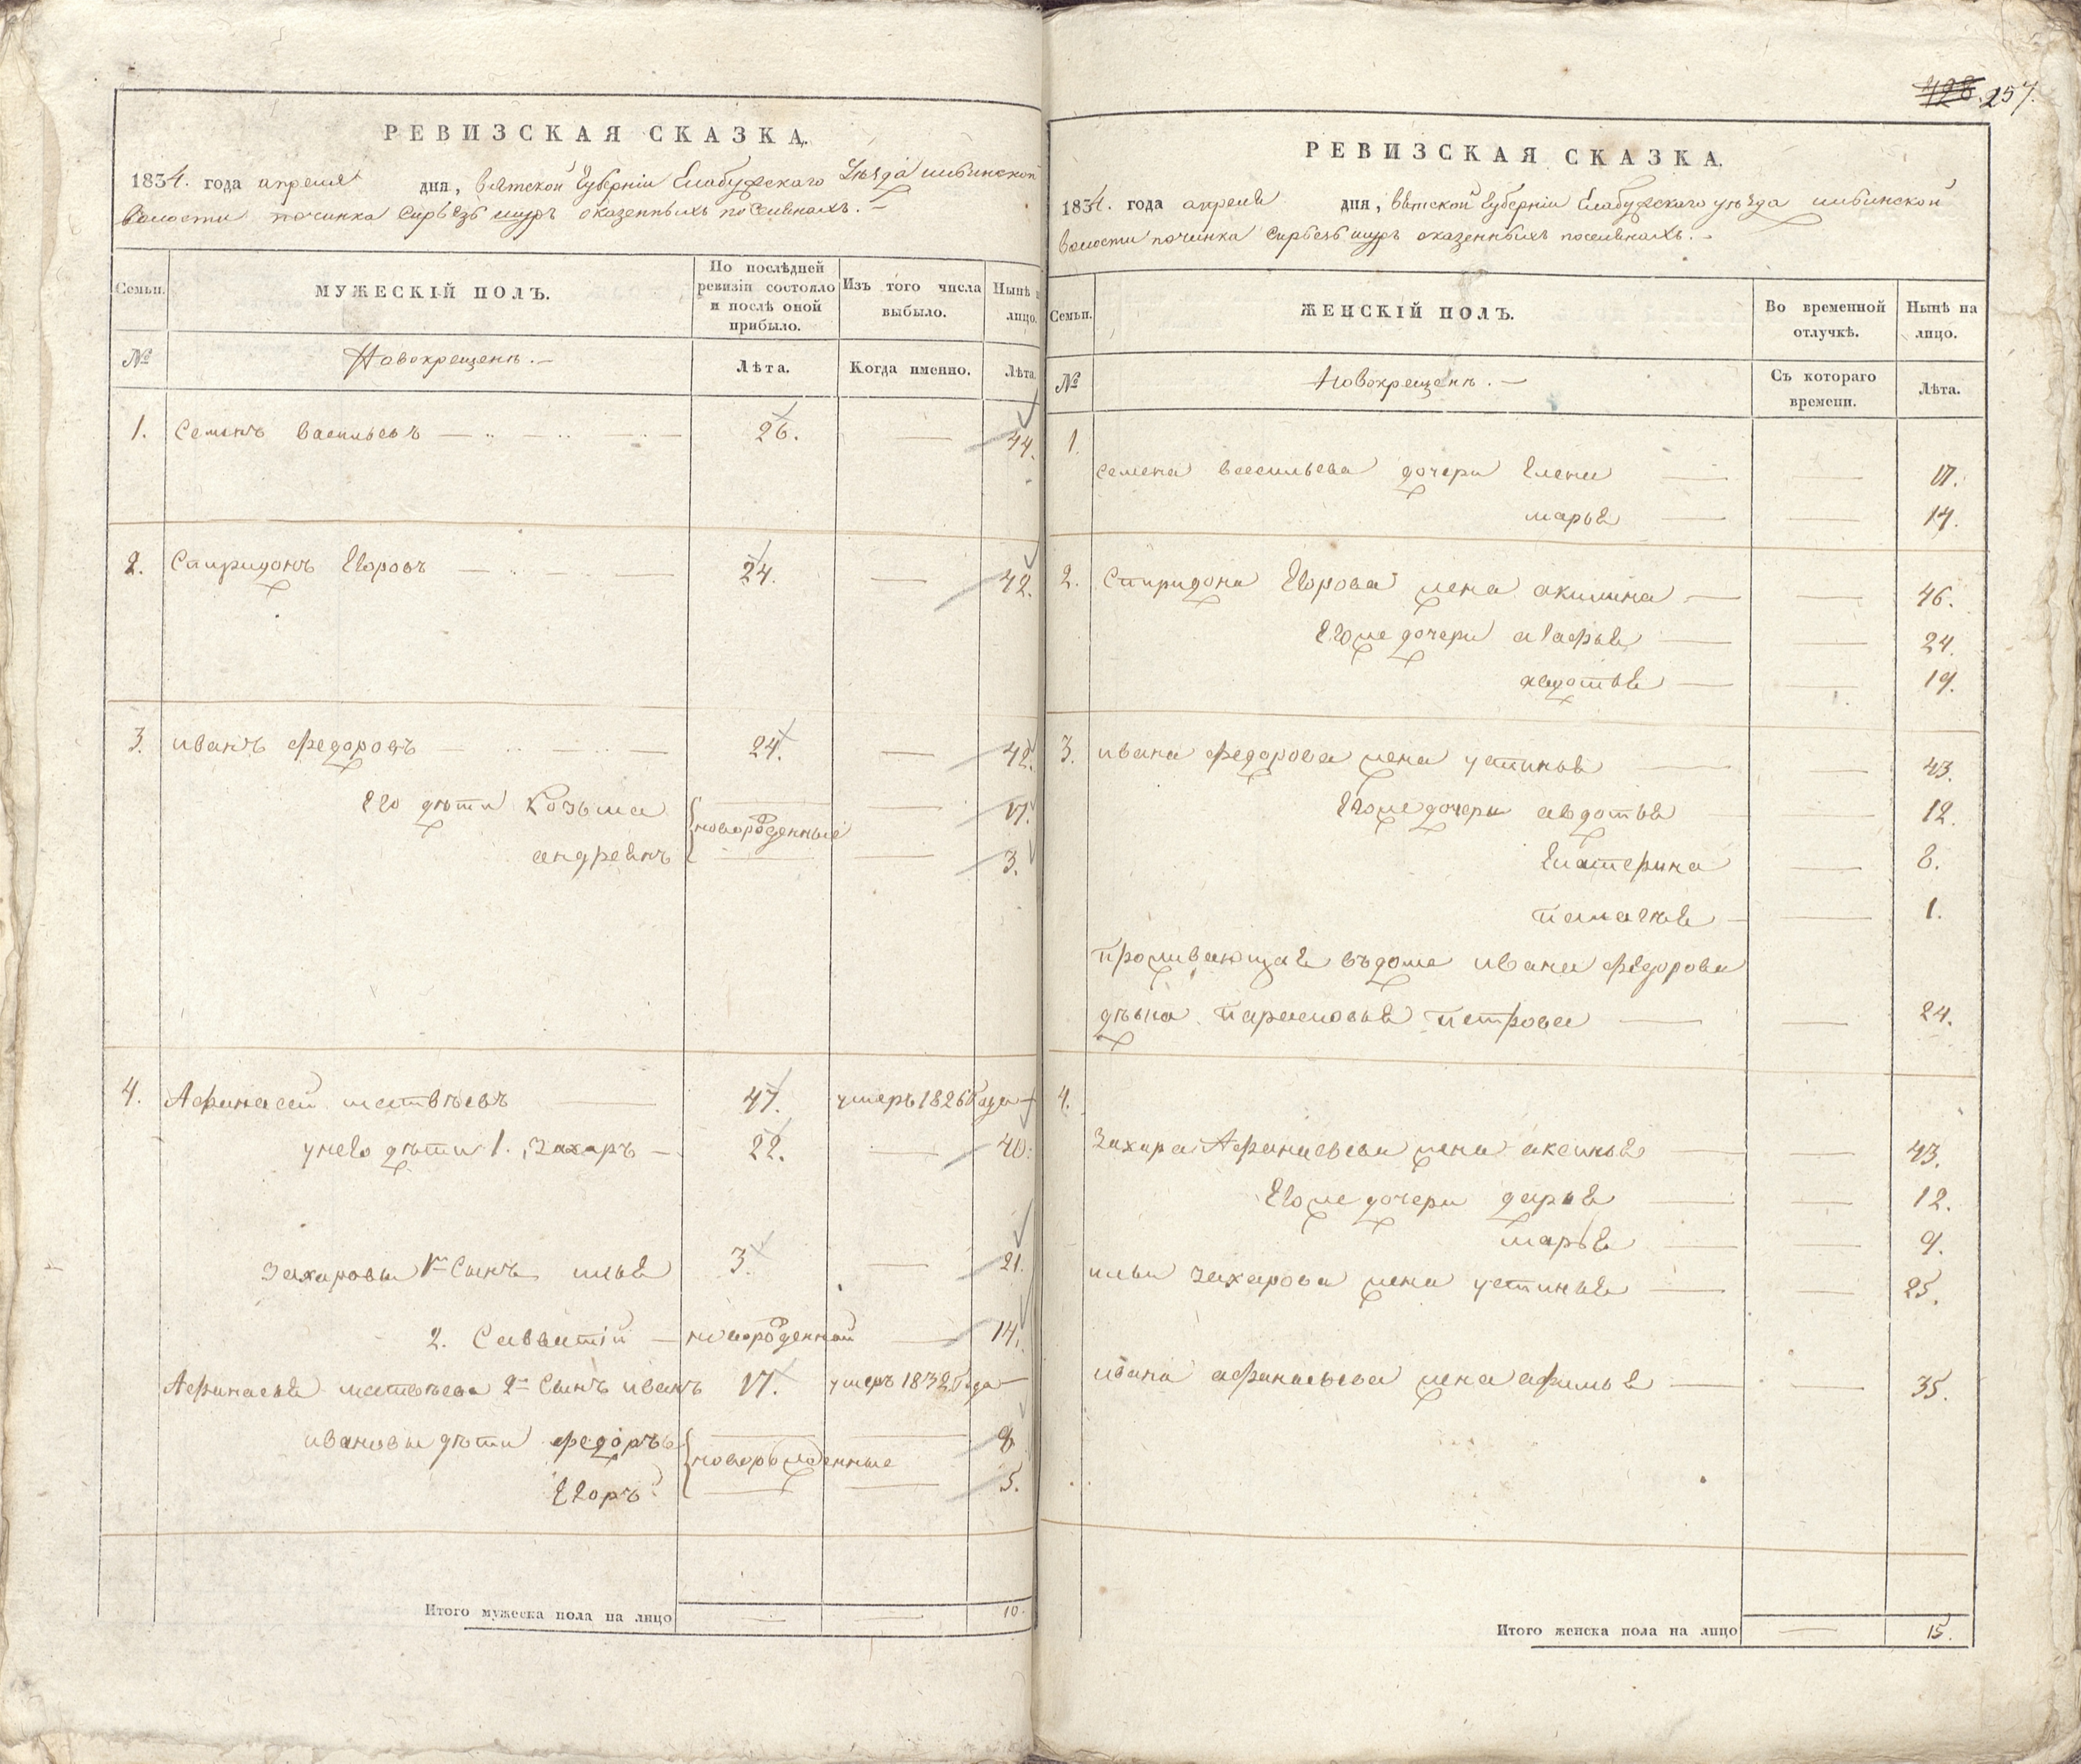 РЕВИЗСКАЯ СКАЗКА.
1834. года апреля дня, вятской Губерніи Елабужского Уѣзда
волости починка оказенныхъ поселянахъ.
Семьи.
МУЖЕСКІЙ ПОЛЪ.
По послѣдней ревизіи состояло и послѣ оной прибыло.
Изъ того числа выбыло.
Нынѣ на лицо.
№
Новокрещенъ.
Лѣта.
Когда именно.
Лѣта.
1. Семенъ Васильевъ 26. 44.
2. Спиридонъ Егоровъ 24. 42.
3. иванъ федоровъ 24. 42.
Его дѣти Козьма 17.
новорожденные
андреянъ 3.
4. Афанасей матвѣевъ 47. умеръ 1826 года
унего дѣти 1. Захаръ 22. 40.
Захаровы 1й Сынъ илья 3. 21.
2. Савватій новорожденной 14.
Афанасья матвѣева 2й Сынъ иванъ 17. умеръ 1832 года
ивановы дѣти федоръ 8
новорожденные
Егоръ 5.
Итого мужеска пола на лицо 10.
428. 257.
РЕВИЗСКАЯ СКАЗКА.
1834. года апреля дня, вятской Губерніи Елабужского уѣзда
волости починка оказенныхъ поселянахъ.
Семьи.
ЖЕНСКІЙ ПОЛЪ.
Во временной отлучкѣ.
Нынѣ на лицо.
№
Новокрещенъ.
Съ котораго времени.
Лѣта.
1.
семена васильева дочери Елена 17.
марья 14.
2. Спиридона Егорова жена акилина 46.
Егоже дочери агафья 24.
авдотья 19.
3. ивана федорова жена устинья 43.
Егоже дочери авдотья 12.
Екатерина 8.
пелагея 1.
проживающая въдоме ивана федорова
дѣвка парасковья петрова 24.
4.
Захара Афанасьева жена аксинья 43.
Егоже дочери дарья 12.
марья 9.
ильи захарова жена устинья 25.
ивана афанасьева жена афимья 35.
Итого женска пола на лицо 15.